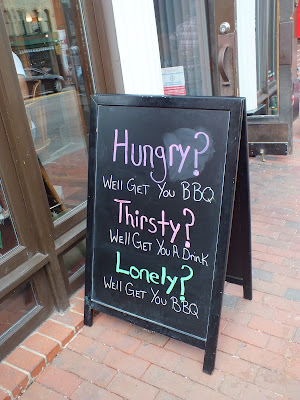 Hungry?
Well Get You BBQ
Thirsty?
Well Get You A Drink
Lonely?
Well Get You BBQ